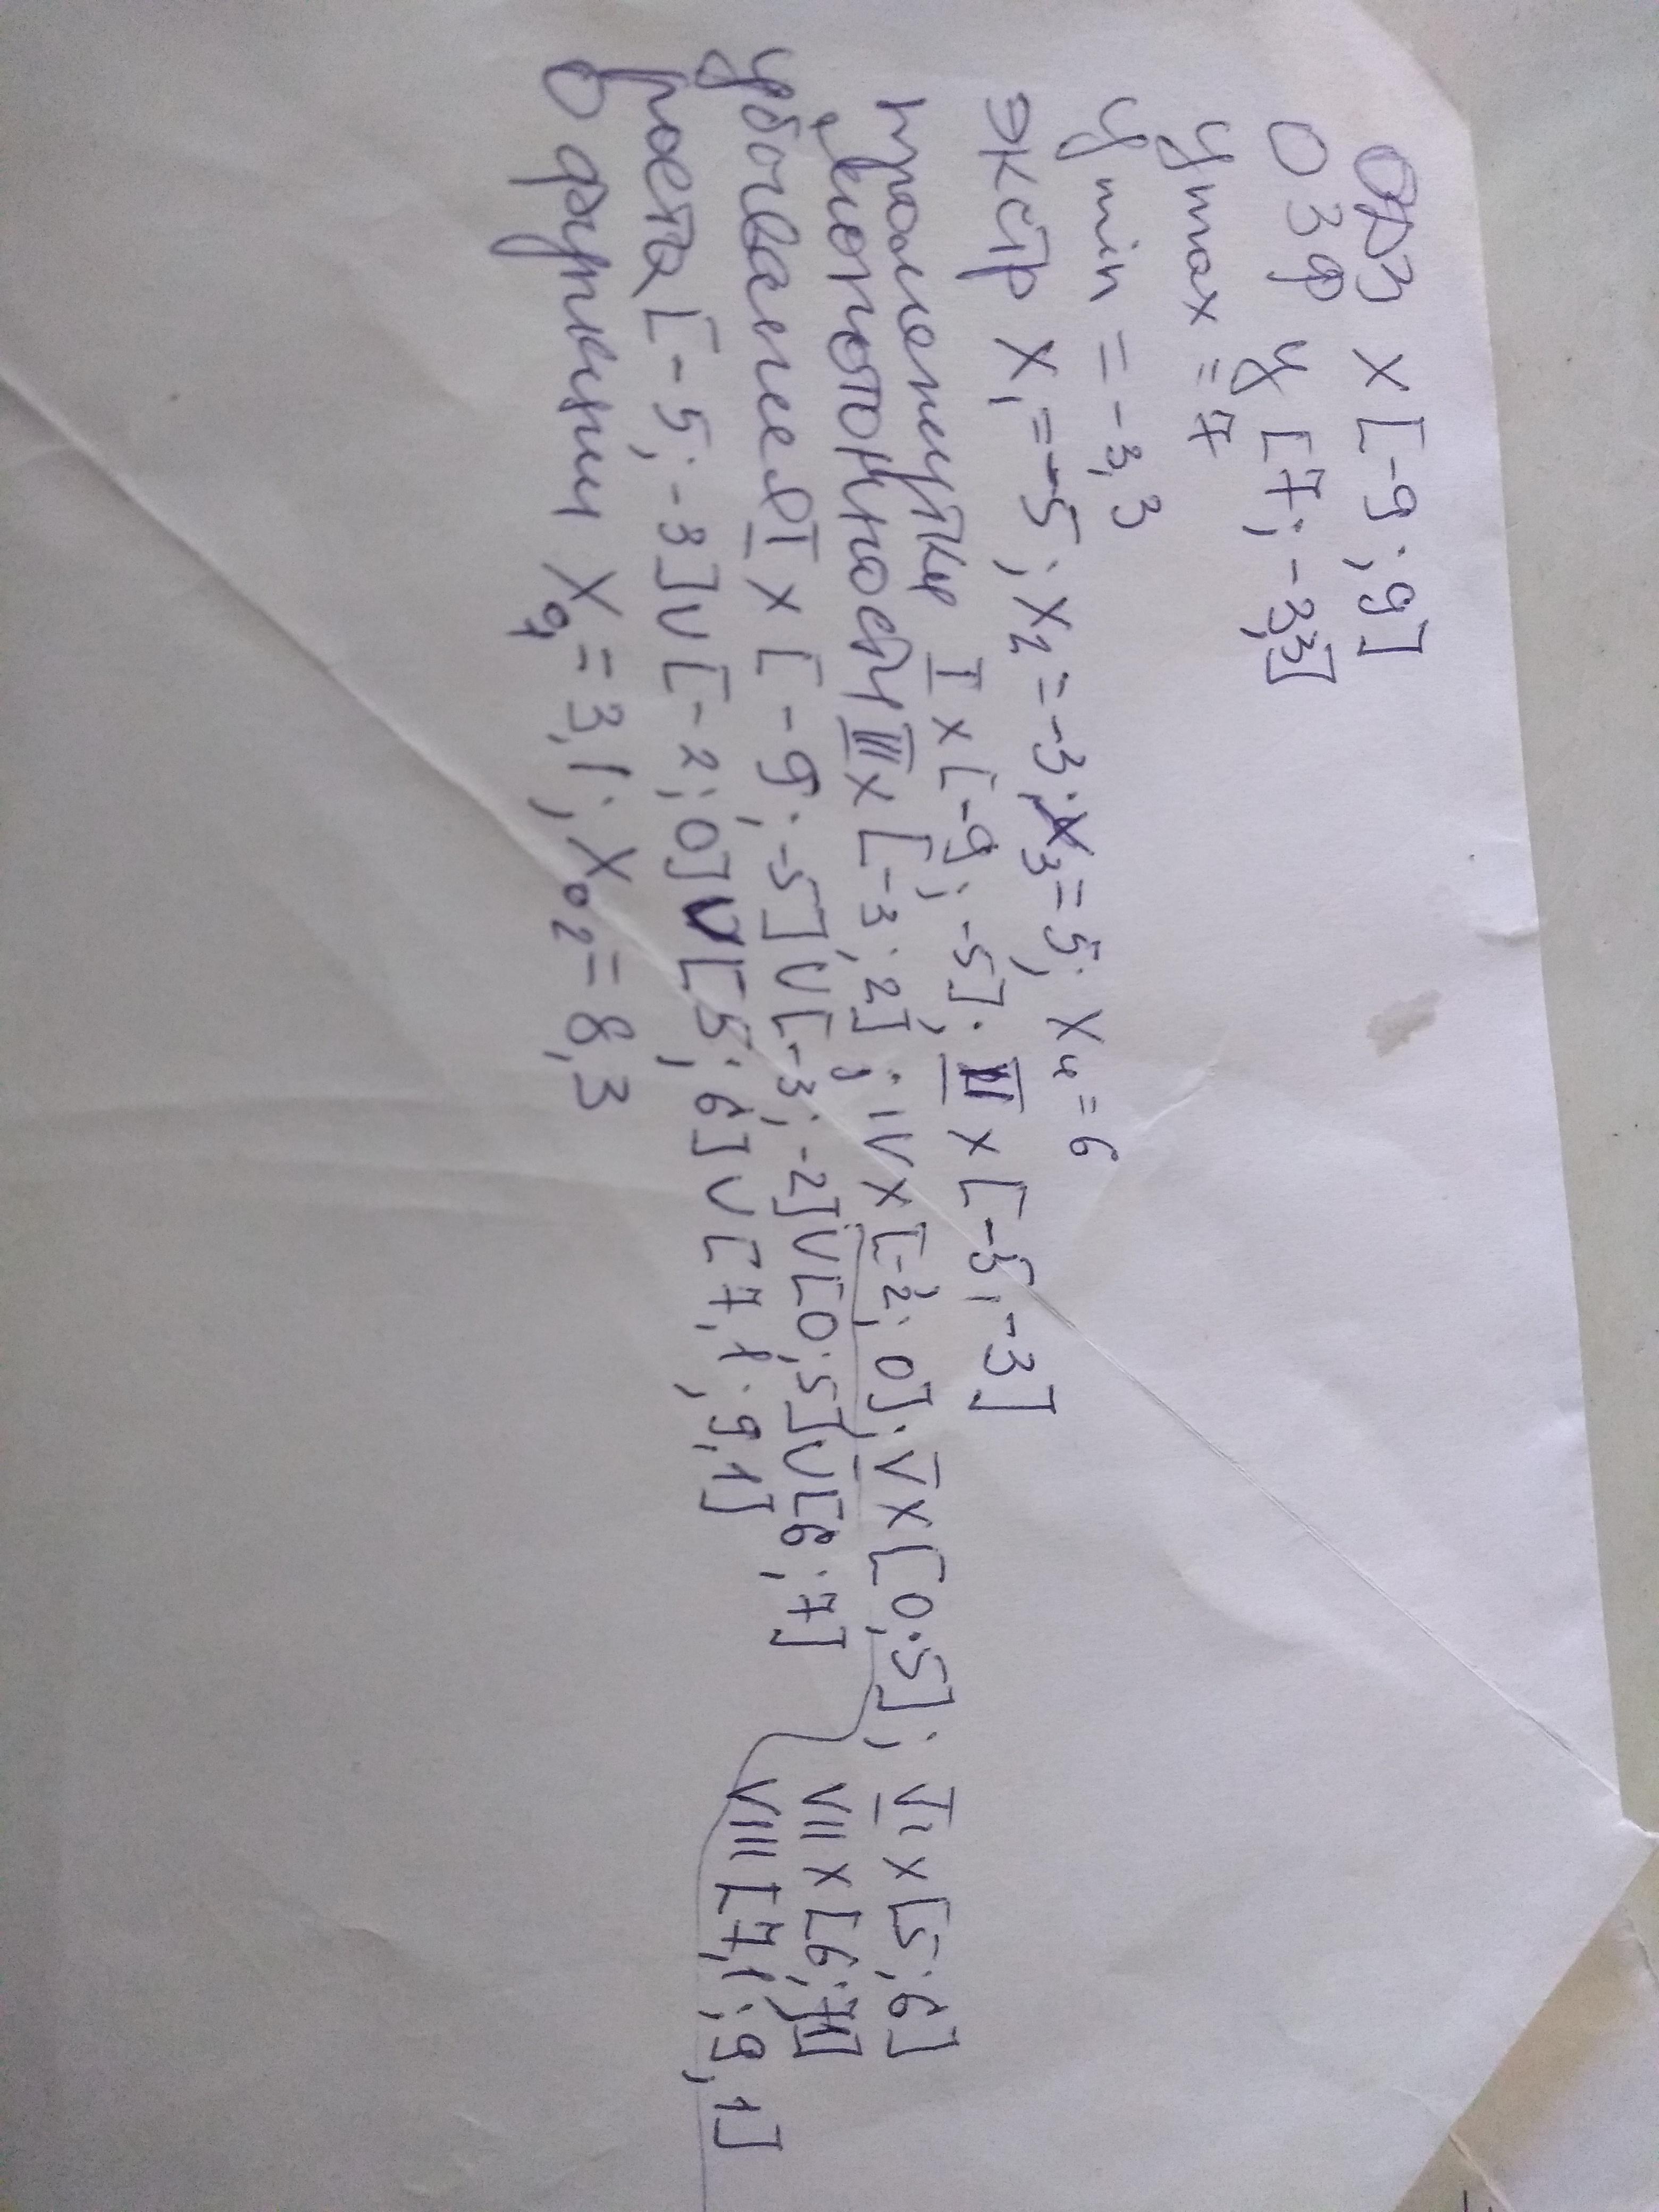 ОДЗ х [-9; 9]
ОЗФ у [7; -3,3]
y max = 7
y min = -3,3
экстр х₁ = -5; х₂ = -3; х₃ = 5; х₄ = 6
промежутки I x [-9; -5]; II x [-5; -3]
монотонности III x [-3; 2]; IV x [-2; 0]; V x [0; 5]; VI x [5; 6]
VII x [6; 7,1]
VIII [7,1; 9,1]
убывание I x [-9; -5] U [-3; -2] U [0; 5] U [6; 7]
роста [-5; -3] U [-2; 0] U [5; 6] U [7,1; 9,1]
0 функции х₀₁ = 3,1; х₀₂ = 8,3